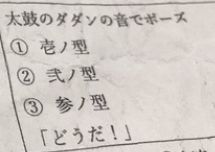 太鼓のダダンの音でポーズ
① 壱ノ型
② 弐ノ型
③ 参ノ型
「どうだ!」